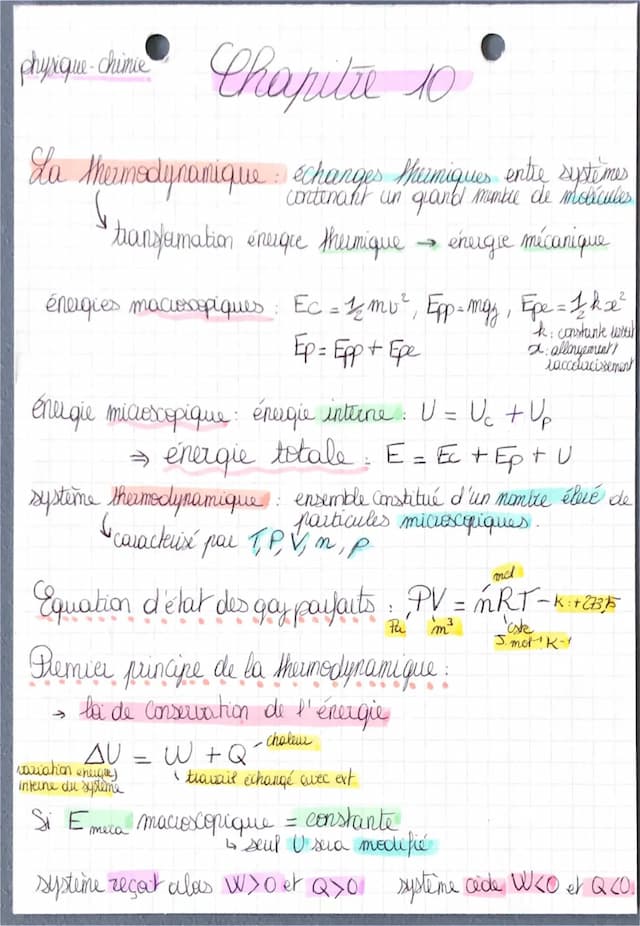 physique-chimie
Chapitre 10
La thermodynamique : échanges thermiques entre systèmes
contenant un grand nombre de molécules
↳ transformation énergie thermique → énergie mécanique
énergies macroscopiques : Ec = 1/2 mv², Epp = mgz, Epe = 1/2 k x²
k : constante
x : allongement/
raccourcissement
Ep = Epp + Epe
énergie microscopique : énergie interne : U = Uc + Up
⇒ énergie totale : E = Ec + Ep + U
système thermodynamique : ensemble constitué d'un nombre élevé de
particules microscopiques.
↳ caractérisé par T, P, V, n, ρ
mol
Equation d'état des gaz parfaits : PV = nRT - K : + 273,15
Pa m³ cste
J.mol⁻¹ K⁻¹
Premier principe de la thermodynamique :
→ loi de conservation de l'énergie
ΔU = W + Q - chaleur
variation énergie
interne du système
travail échangé avec ext
Si E meca macroscopique = constante
↳ seul U sera modifié
système reçoit alors W>0 et Q>0 système cède W<0 et Q<0